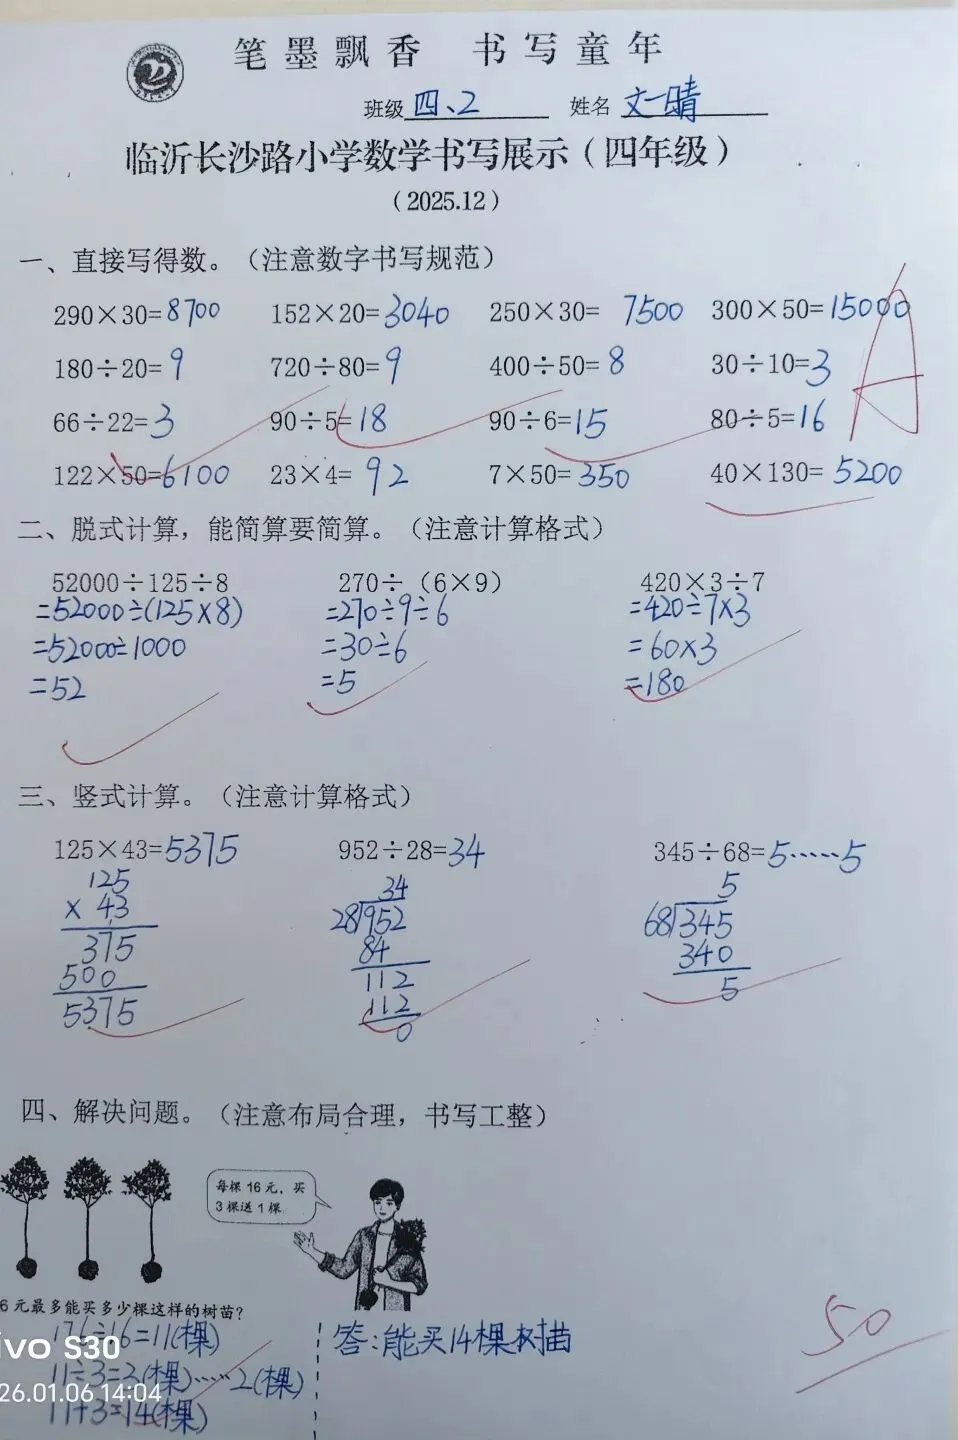 笔墨飘香 书写童年
班级 四、2 姓名 文一晴
临沂长沙路小学数学书写展示（四年级）
（2025.12）
一、直接写得数。（注意数字书写规范）
290×30=8700 152×20=3040 250×30= 7500 300×50=15000
180÷20=9 720÷80=9 400÷50=8 30÷10=3
66÷22=3 90÷5=18 90÷6=15 80÷5=16
122×50=6100 23×4= 92 7×50=350 40×130= 5200
A
二、脱式计算，能简算要简算。（注意计算格式）
52000÷125÷8 270÷（6×9） 420×3÷7
=52000÷(125×8) =270÷9÷6 =420÷7×3
=52000÷1000 =30÷6 =60×3
=52 =5 =180
三、竖式计算。（注意计算格式）
125×43=5375 952÷28=34 345÷68=5……5
125 34 5
× 43 28 952 68 345
375 84 340
500 112 5
5375 112
0
四、解决问题。（注意布局合理，书写工整）
每棵 16 元，买
3 棵送 1 棵
6 元最多能买多少棵这样的树苗？
176÷16=11(棵) 答:能买14棵树苗
11÷3=3(棵)……2(棵)
11+3=14(棵)
50
ivo S30
26.01.06 14:04